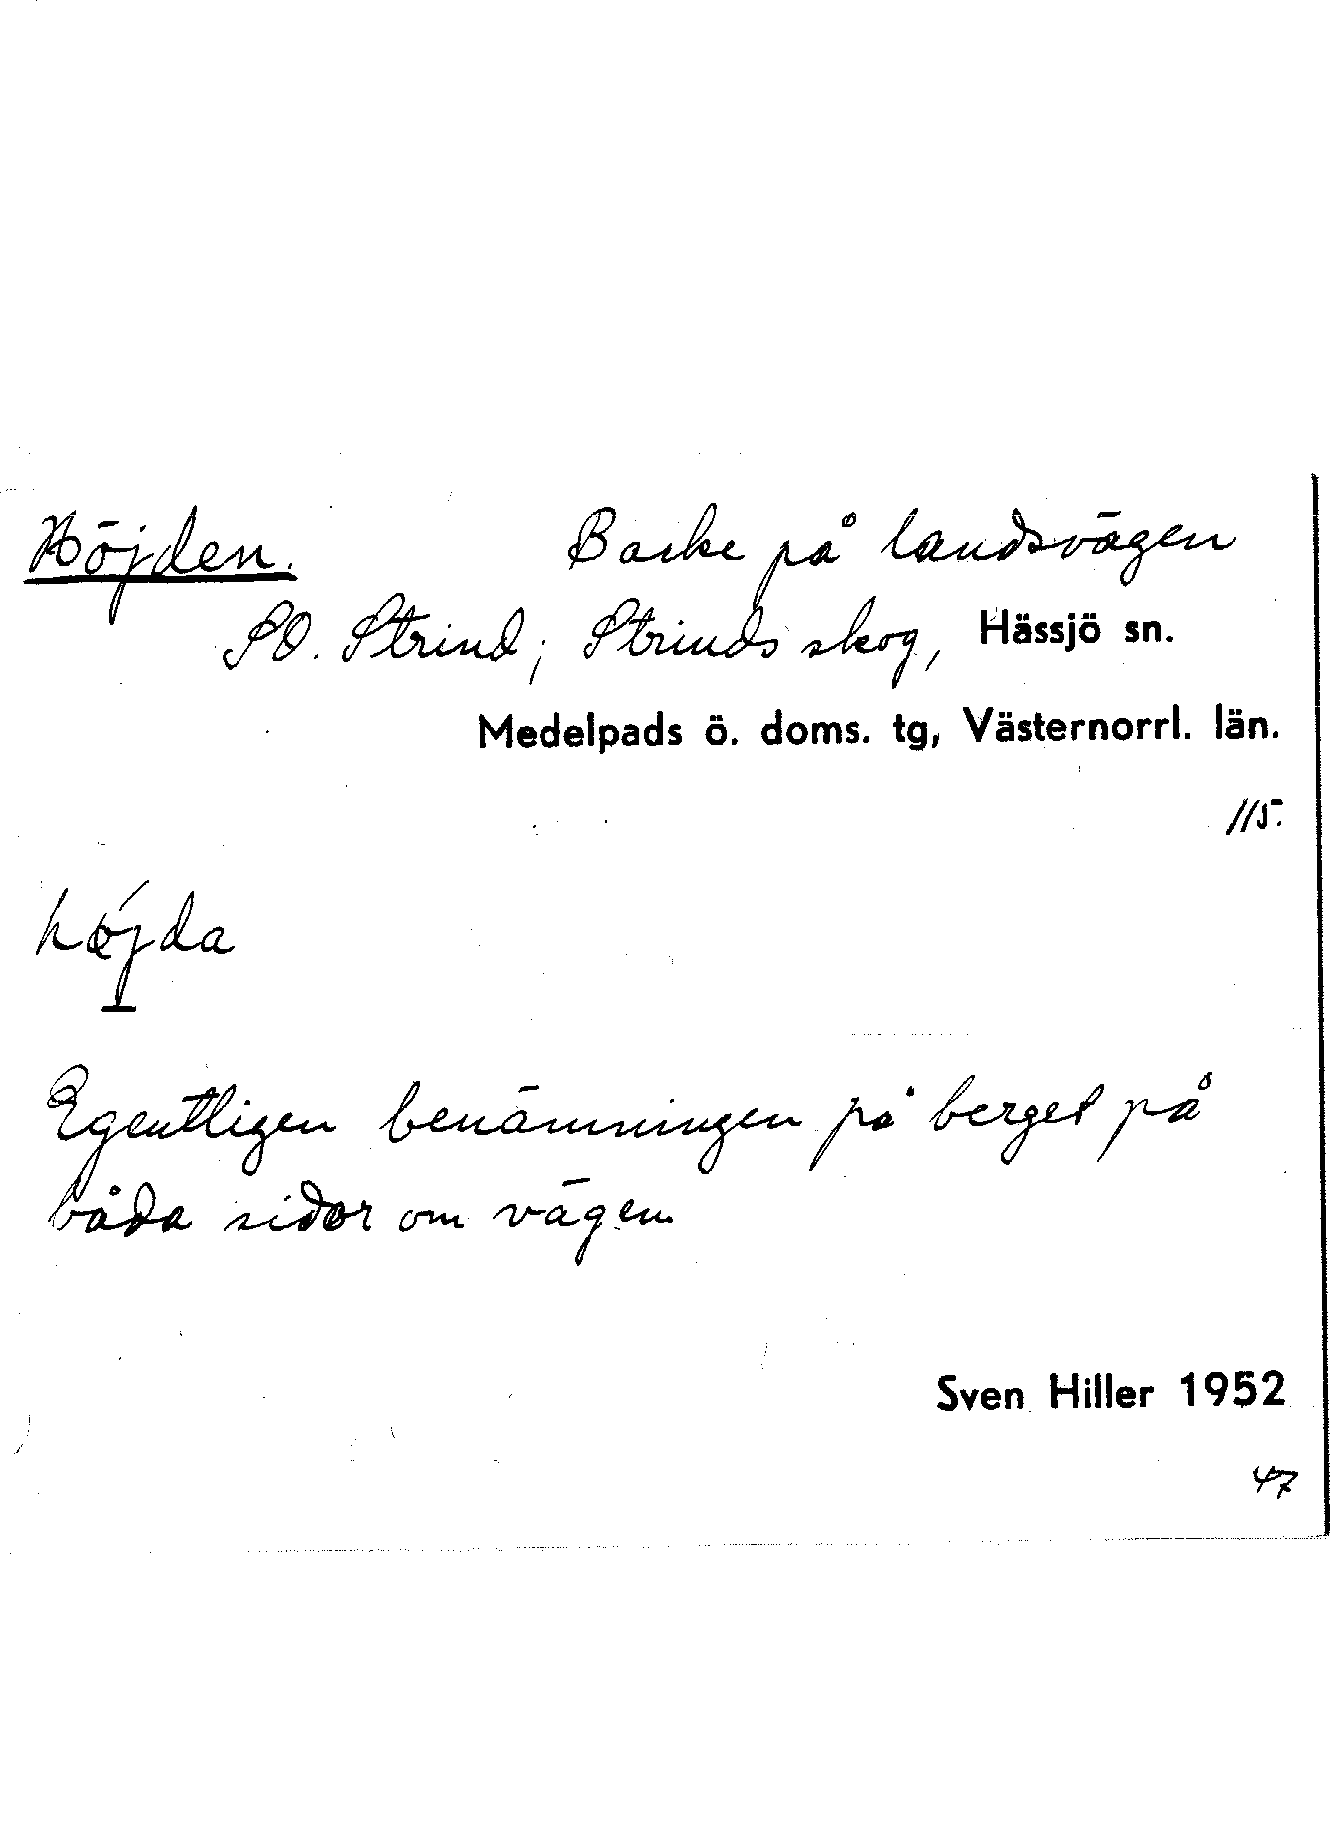 Höjden. Backe på landsvägen
SO. Strind; Strinds skog, Hässjö sn.
Medelpads ö. doms. tg, Västernorrl. län.
115.
højda
Egentligen benämningen på berget på
båda sidor om vägen
Sven Hiller 1952
47